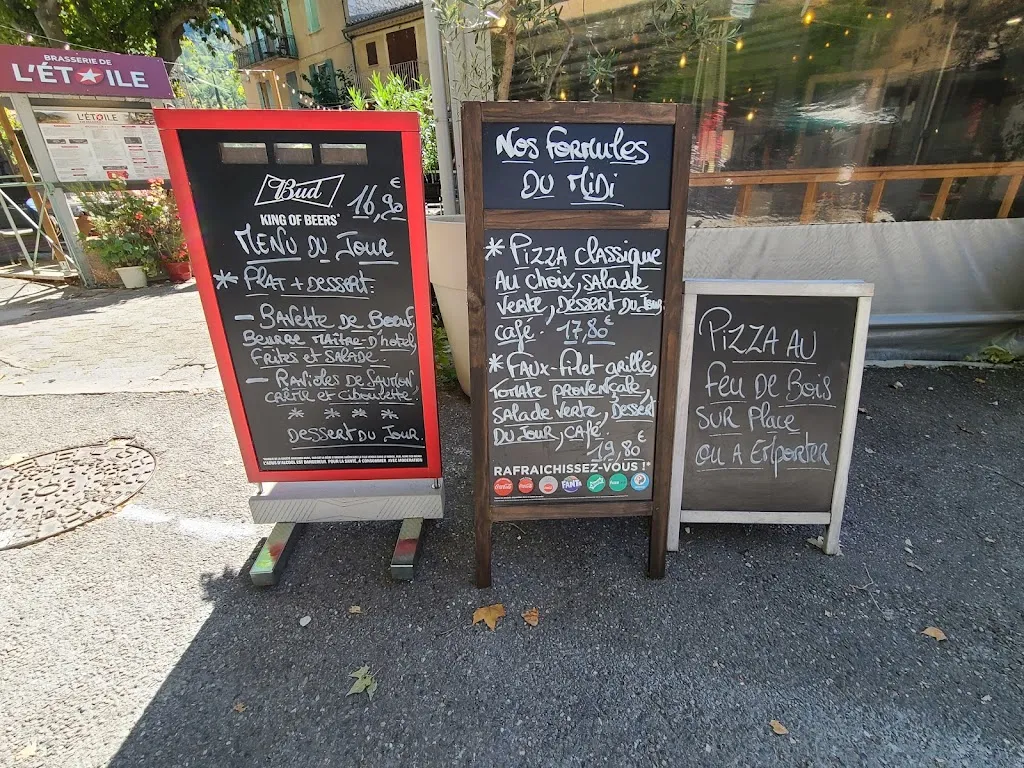 BRASSERIE DE
L'ÉTOILE
L'ÉTOILE
Bud
KING OF BEERS
16,90 €
MENU DU JOUR
* PLAT + DESSERT.
- BAVETTE DE BOEUF,
BEURRE MAITRE-D'HOTEL,
FRITES ET SALADE.
- RAVIOLES DE SAUMON,
CRÈME ET CIBOULETTE.
* * * *
DESSERT DU JOUR.
L'ABUS D'ALCOOL EST DANGEREUX POUR LA SANTÉ, À CONSOMMER AVEC MODÉRATION
NOS FORMULES
DU MIDI
* PIZZA CLASSIQUE
AU CHOIX, SALADE
VERTE, DESSERT DU JOUR,
CAFÉ. 17,80 €
* FAUX-FILET GRILLÉ,
TOMATE PROVENÇALE,
SALADE VERTE, DESSERT
DU JOUR, CAFÉ.
19,80 €
RAFRAICHISSEZ-VOUS !*
FANTA
PIZZA AU
FEU DE BOIS
SUR PLACE
OU A EMPORTER